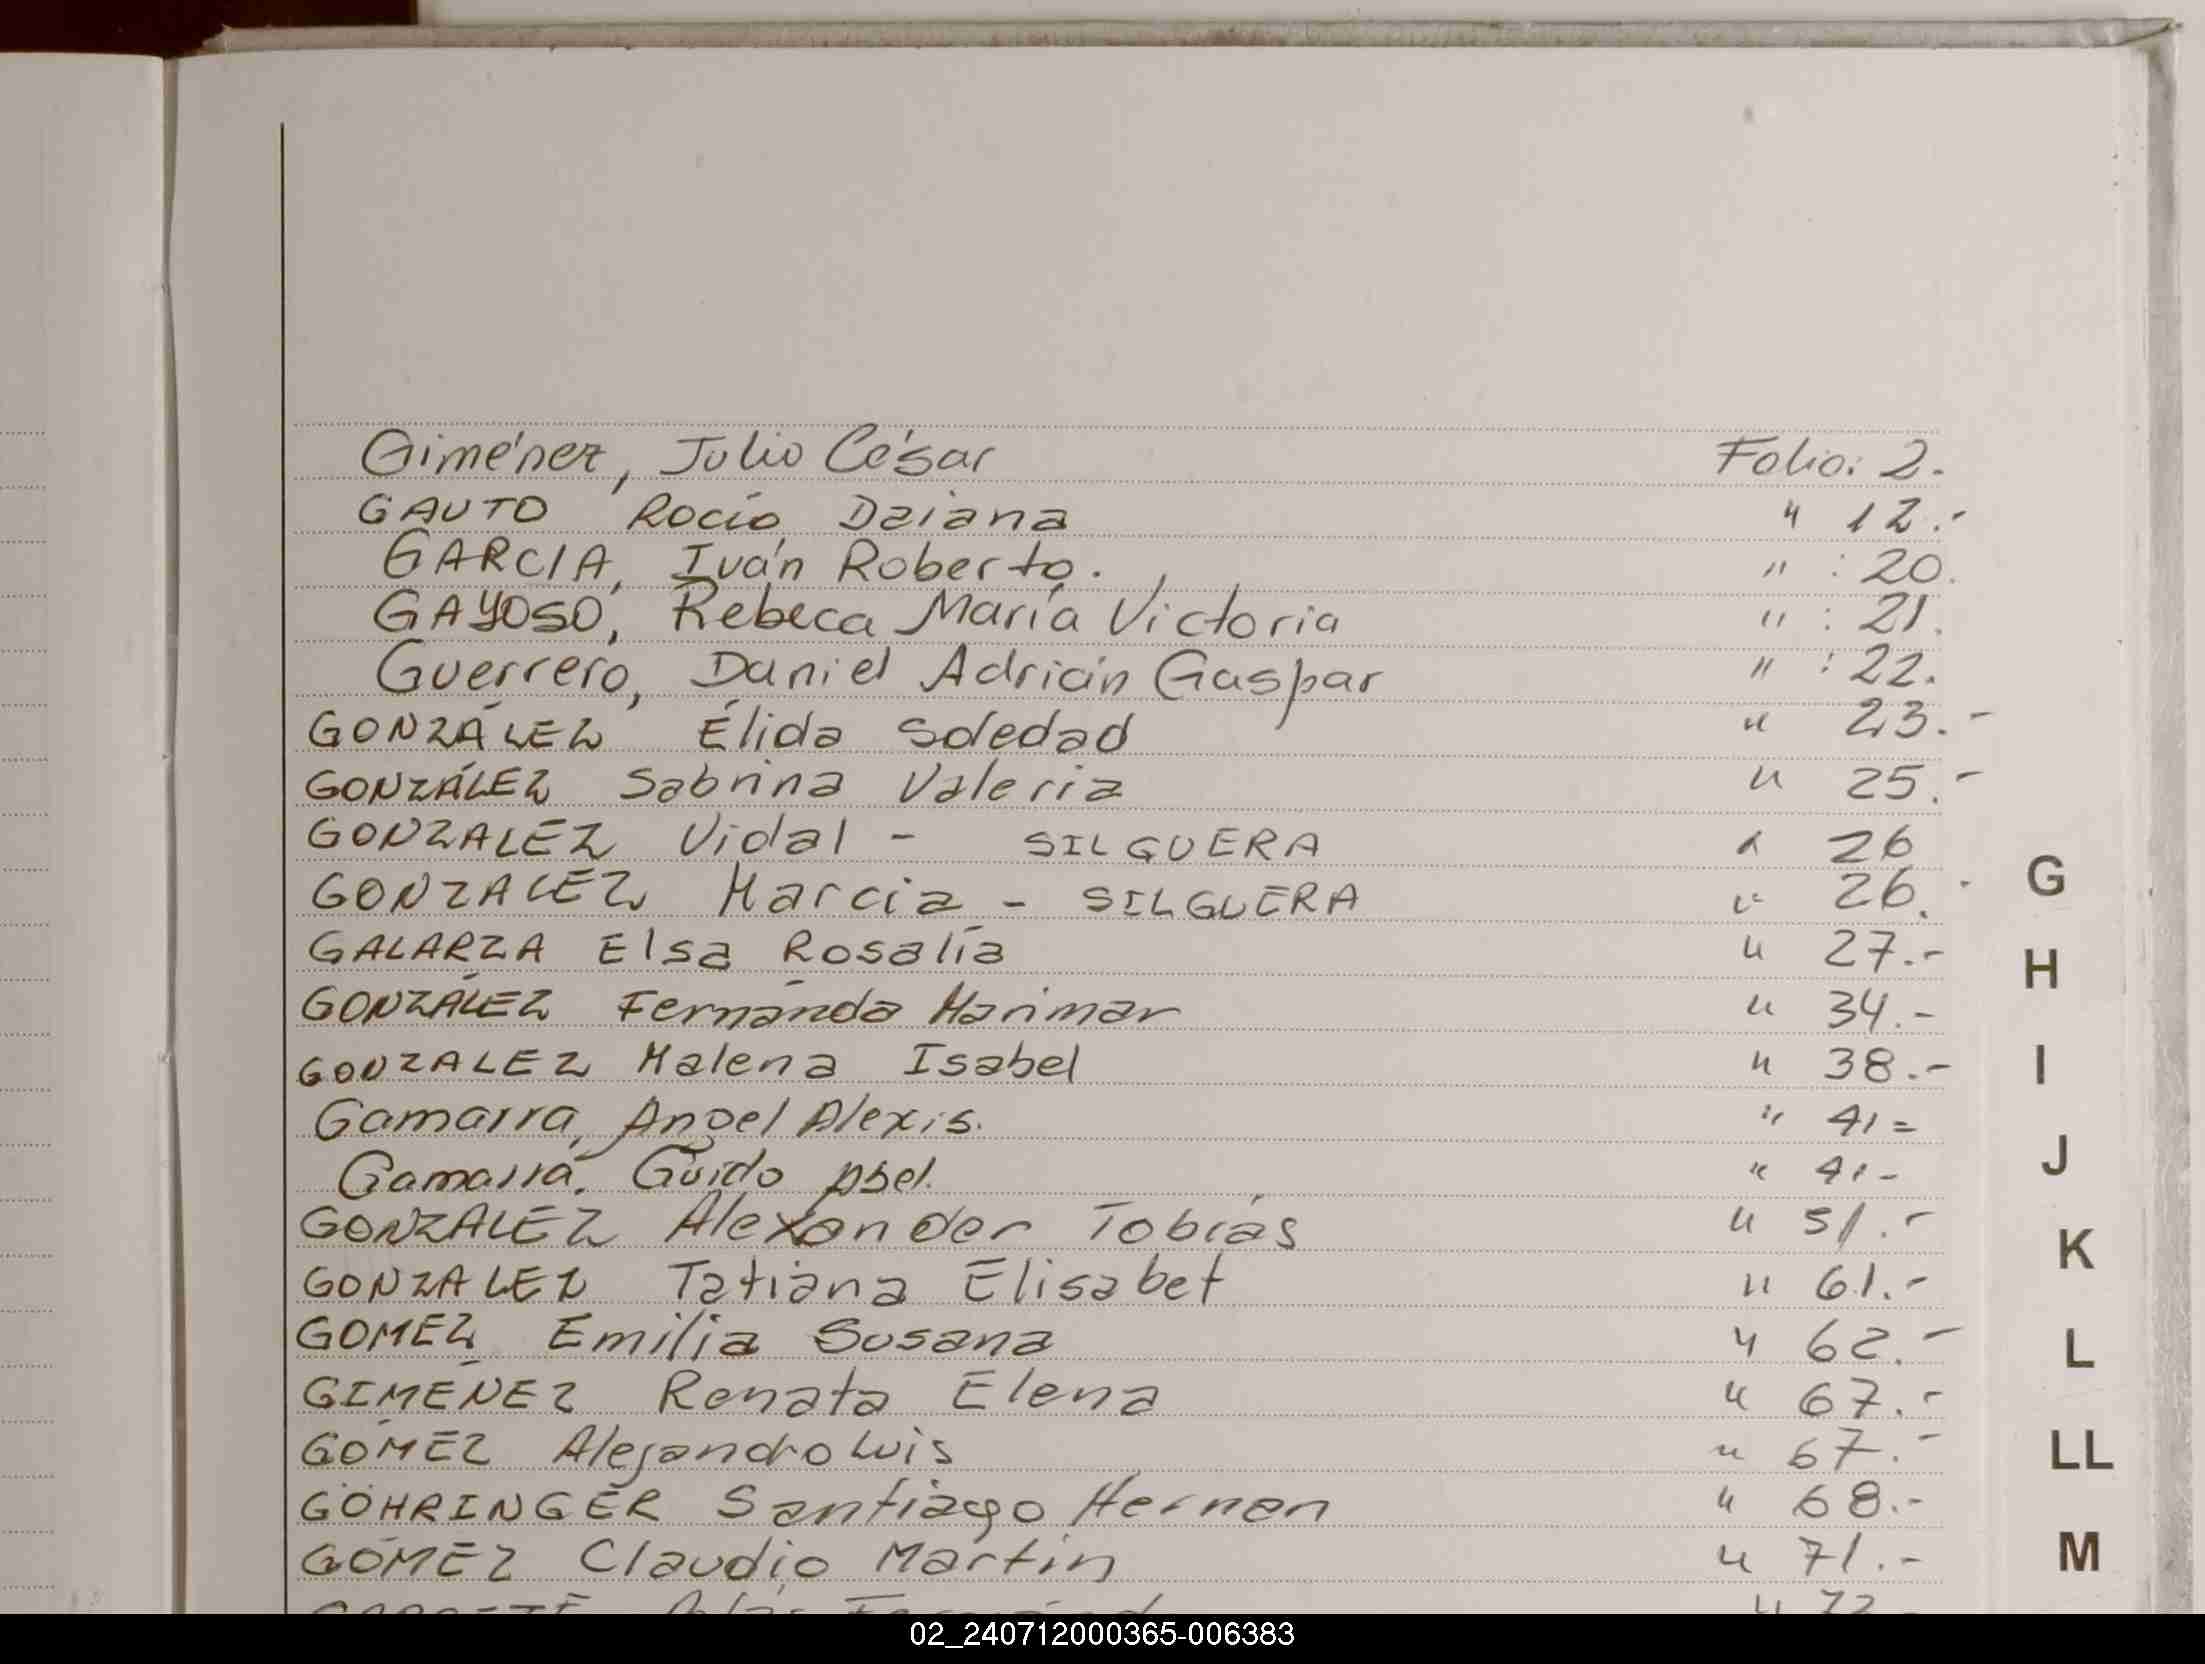 Giménez, Julio César Folio: 2.
GAUTO Rocío Daiana " 12.-
GARCIA, Iván Roberto. " : 20.
GAYOSO, Rebeca María Victoria " : 21.
Guerrero, Daniel Adrián Gaspar " : 22.
GONZÁLEZ Élida Soledad " 23.-
GONZÁLEZ Sabrina Valeria " 25.-
GONZALEZ Vidal - SILGUERA " 26
GONZALEZ Marcia - SILGUERA " 26.-
GALARZA Elsa Rosalía " 27.-
GONZÁLEZ Fernanda Marimar " 34.-
GONZALEZ Malena Isabel " 38.-
Gamarra, Angel Alexis. " 41=
Gamarra, Guido " 41-
GONZALEZ Alexander Tobías " 51.-
GONZALEZ Tatiana Elisabet " 61.-
GOMEZ Emilia Susana " 62.-
GIMÉNEZ Renata Elena " 67.-
GOMEZ Alejandro Luis " 67.-
GÖHRINGER Santiago Hernan " 68.-
GÓMEZ Claudio Martín " 71.-
G
H
I
J
K
L
LL
M
02_240712000365-006383